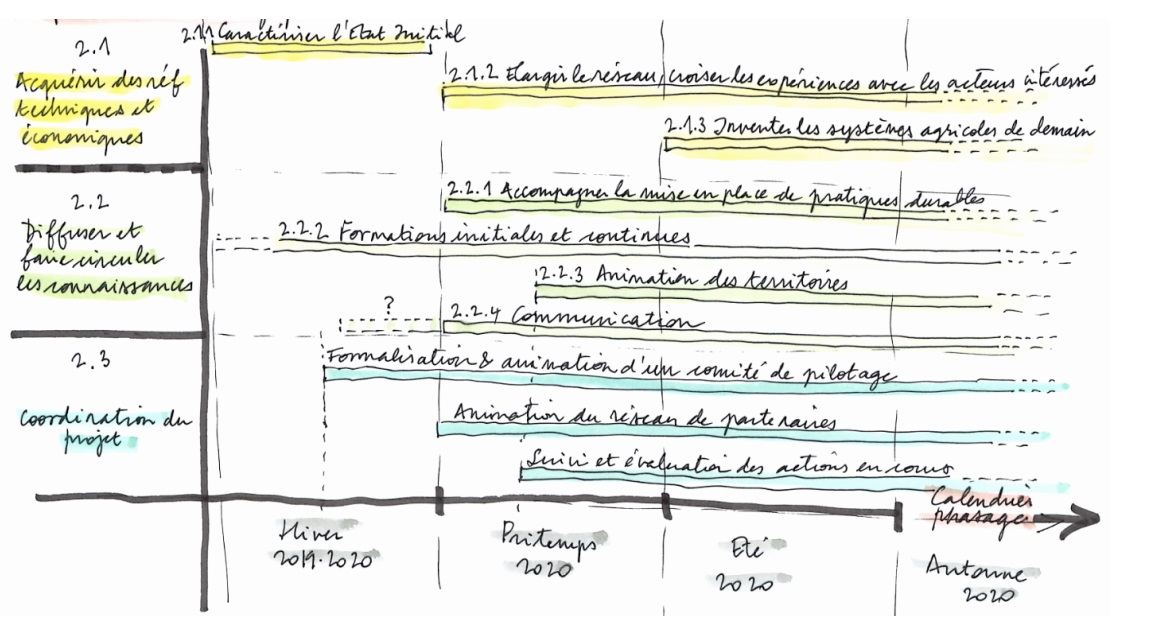 2.1
Acquérir des réf
techniques et
économiques
2.1.1 Caractériser l'Etat Initial
2.1.2 Elargir le réseau, croiser les expériences avec les acteurs intéressés
2.1.3 Inventer les systèmes agricoles de demain
2.2
Diffuser et
faire circuler
les connaissances
2.2.1 Accompagner la mise en place de pratiques durables
2.2.2 Formations initiales et continues
2.2.3 Animation des territoires
?
2.2.4 Communication
2.3
Coordination du
projet
Formalisation & animation d'un comité de pilotage
Animation du réseau de partenaires
Suivi et évaluation des actions en cours
Calendrier
phasage
Hiver
2019.2020
Printemps
2020
Eté
2020
Automne
2020